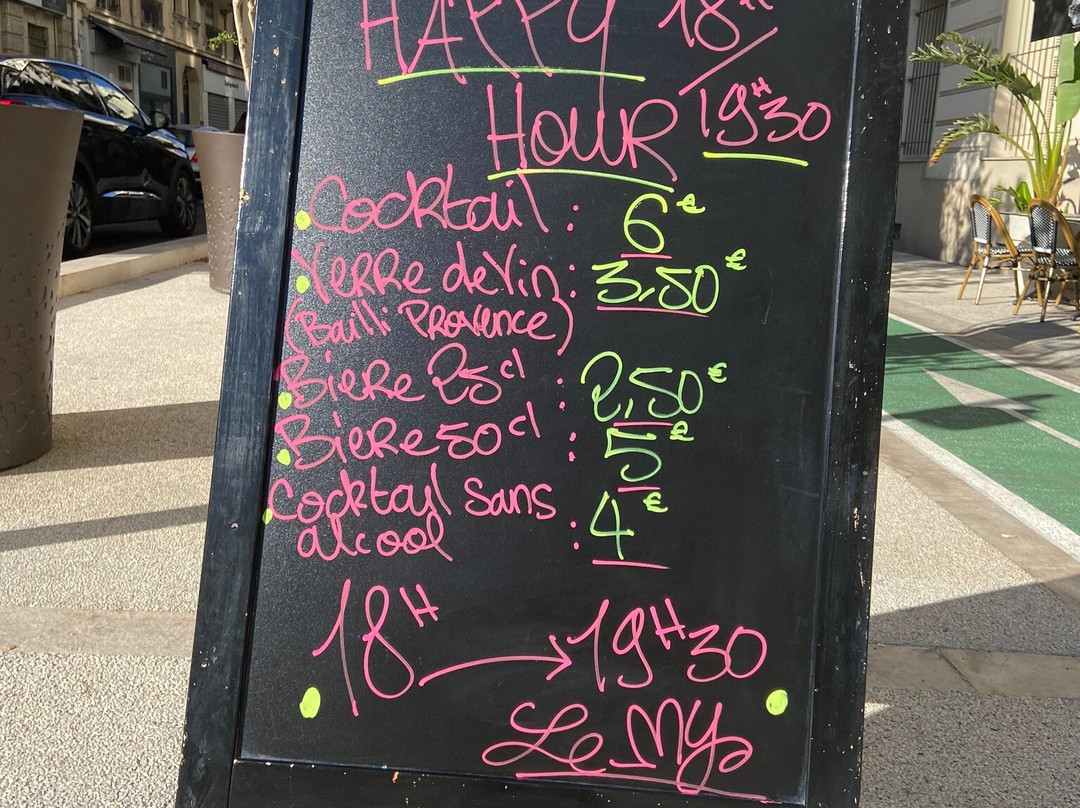 HAPPY 18H
HOUR 19H30
Cocktail : 6€
Verre de Vin : 3,50€
(Bailli Provence)
Biere 25cl : 2,50€
Biere 50cl : 5€
Cocktail Sans
alcool : 4€
18H → 19H30
Le My